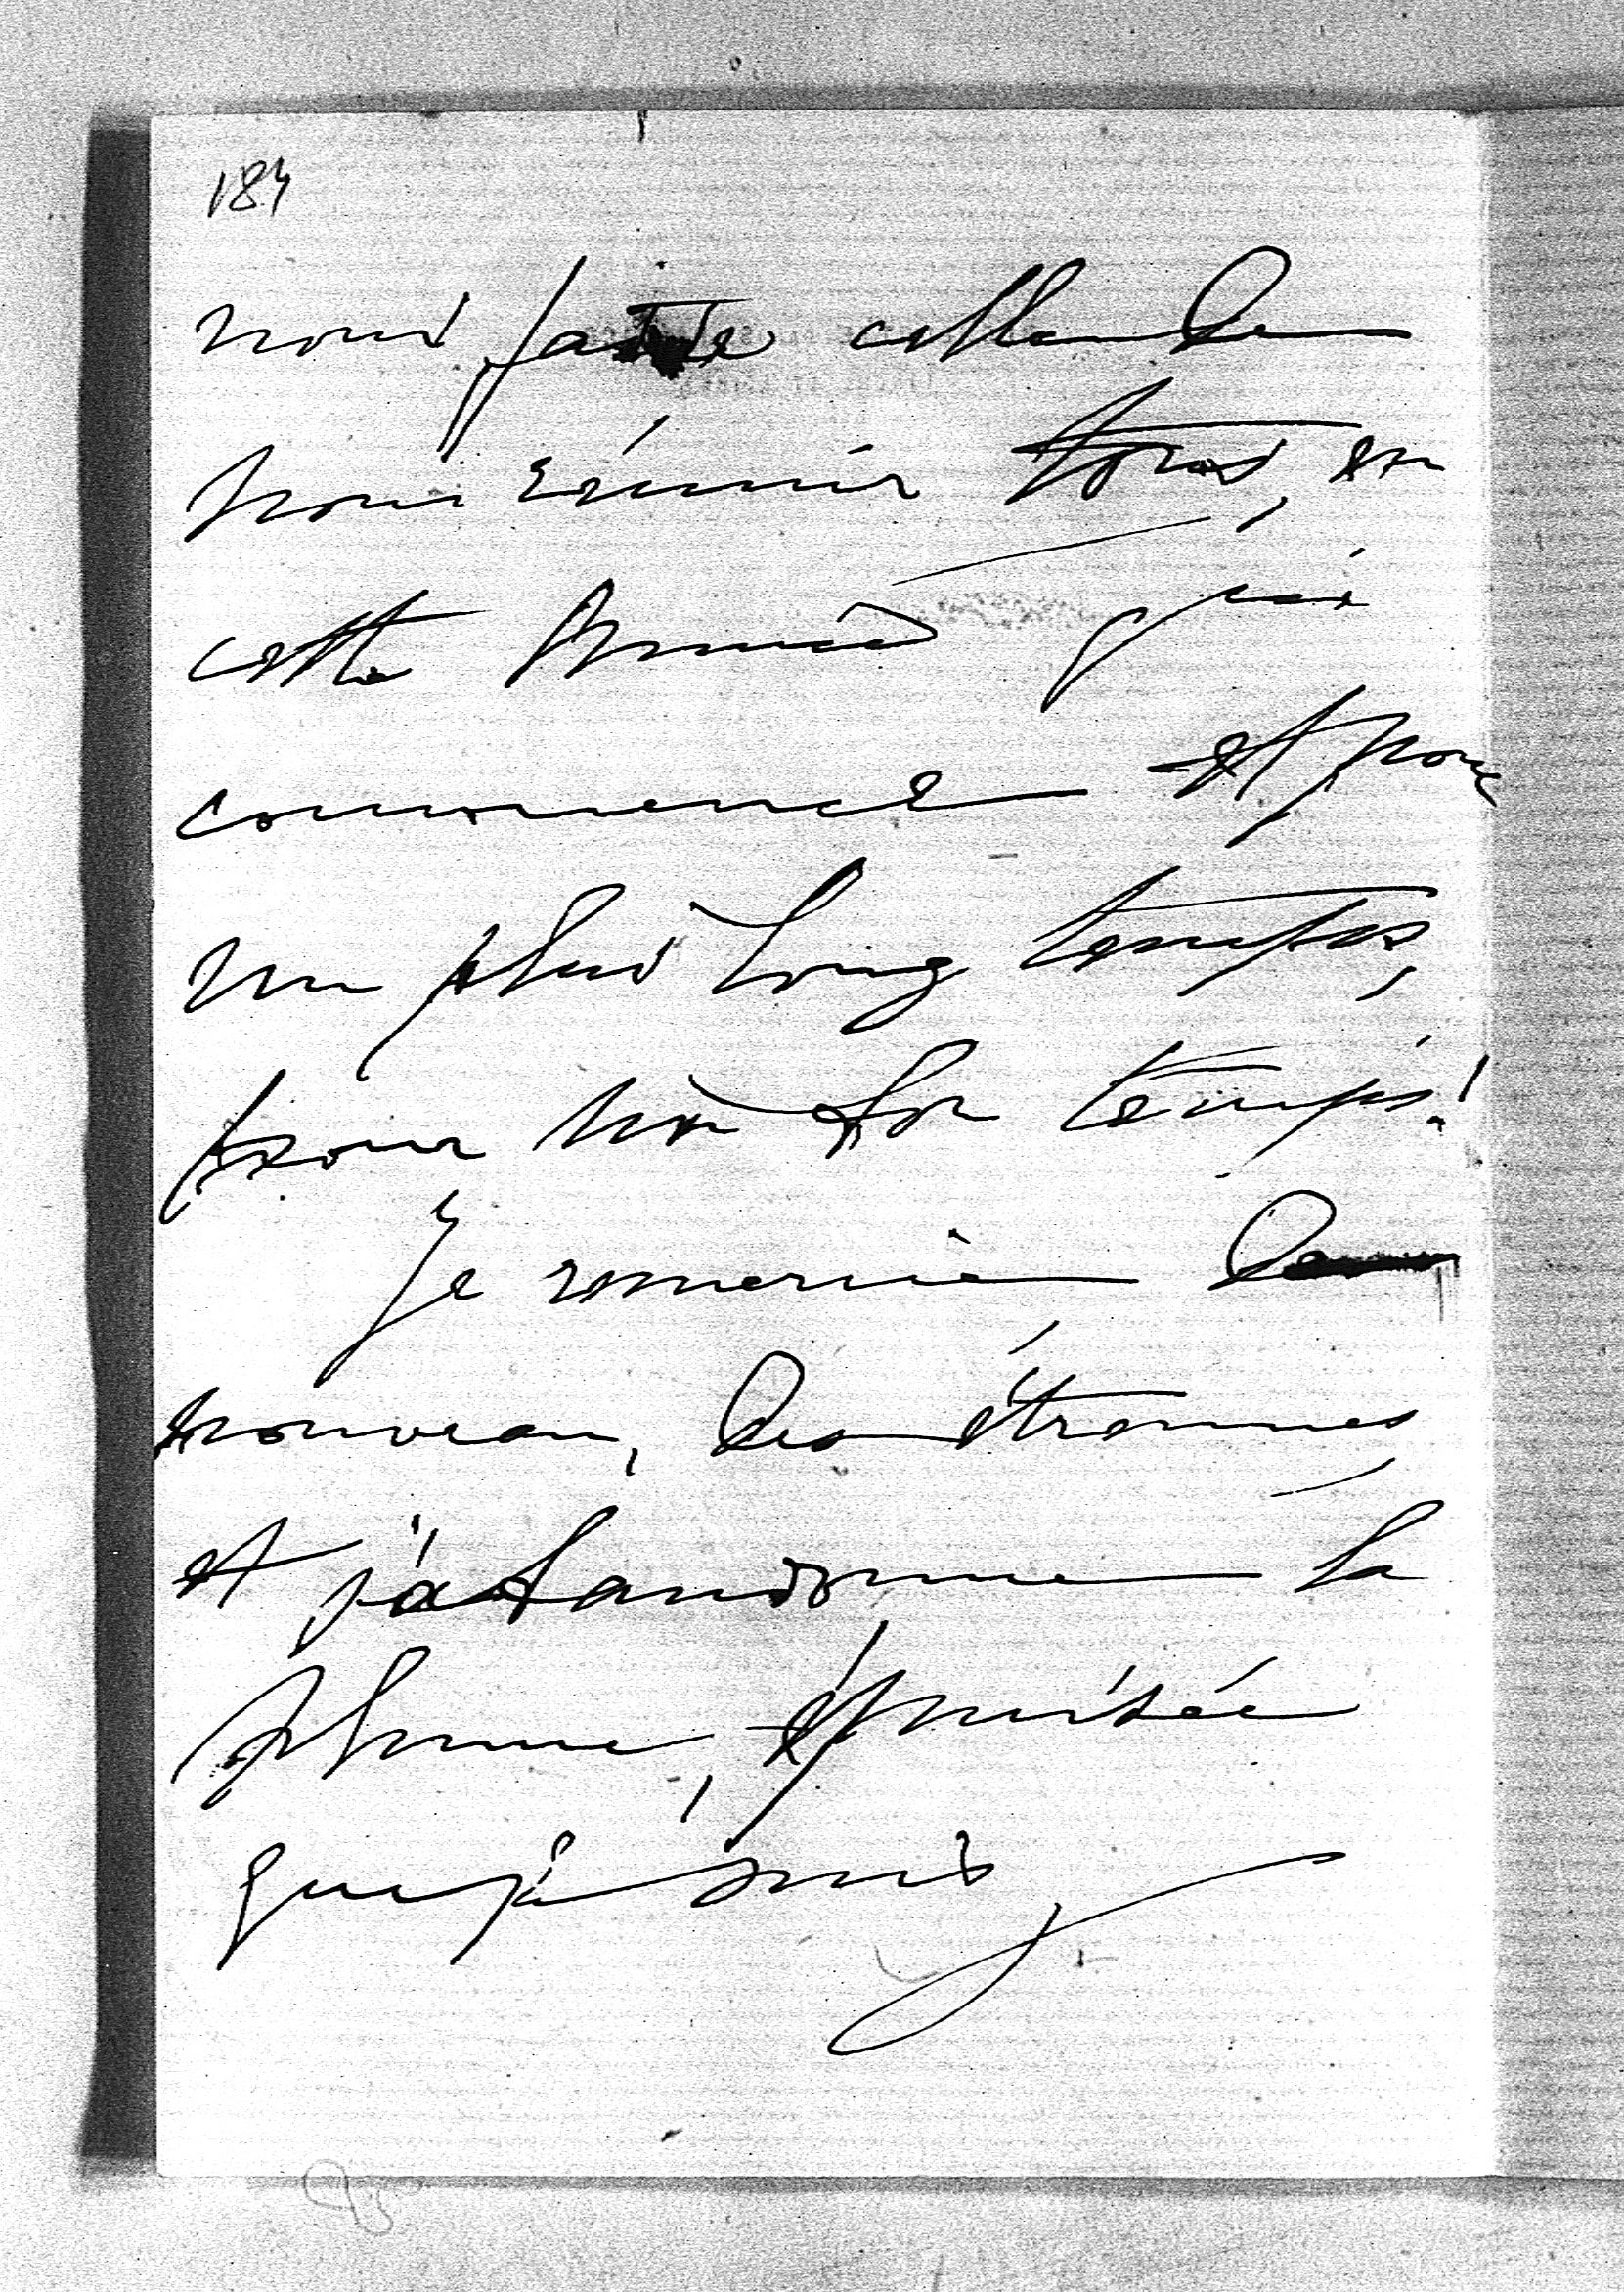 184
nous fasse celle de
nous réunir tous, en
cette Année qui
commence et pour
un plus long temps,
pour un bon temps!
Je remercie de
nouveau, des étrennes
et j'abandonne la
plume, épuisée
que je suis